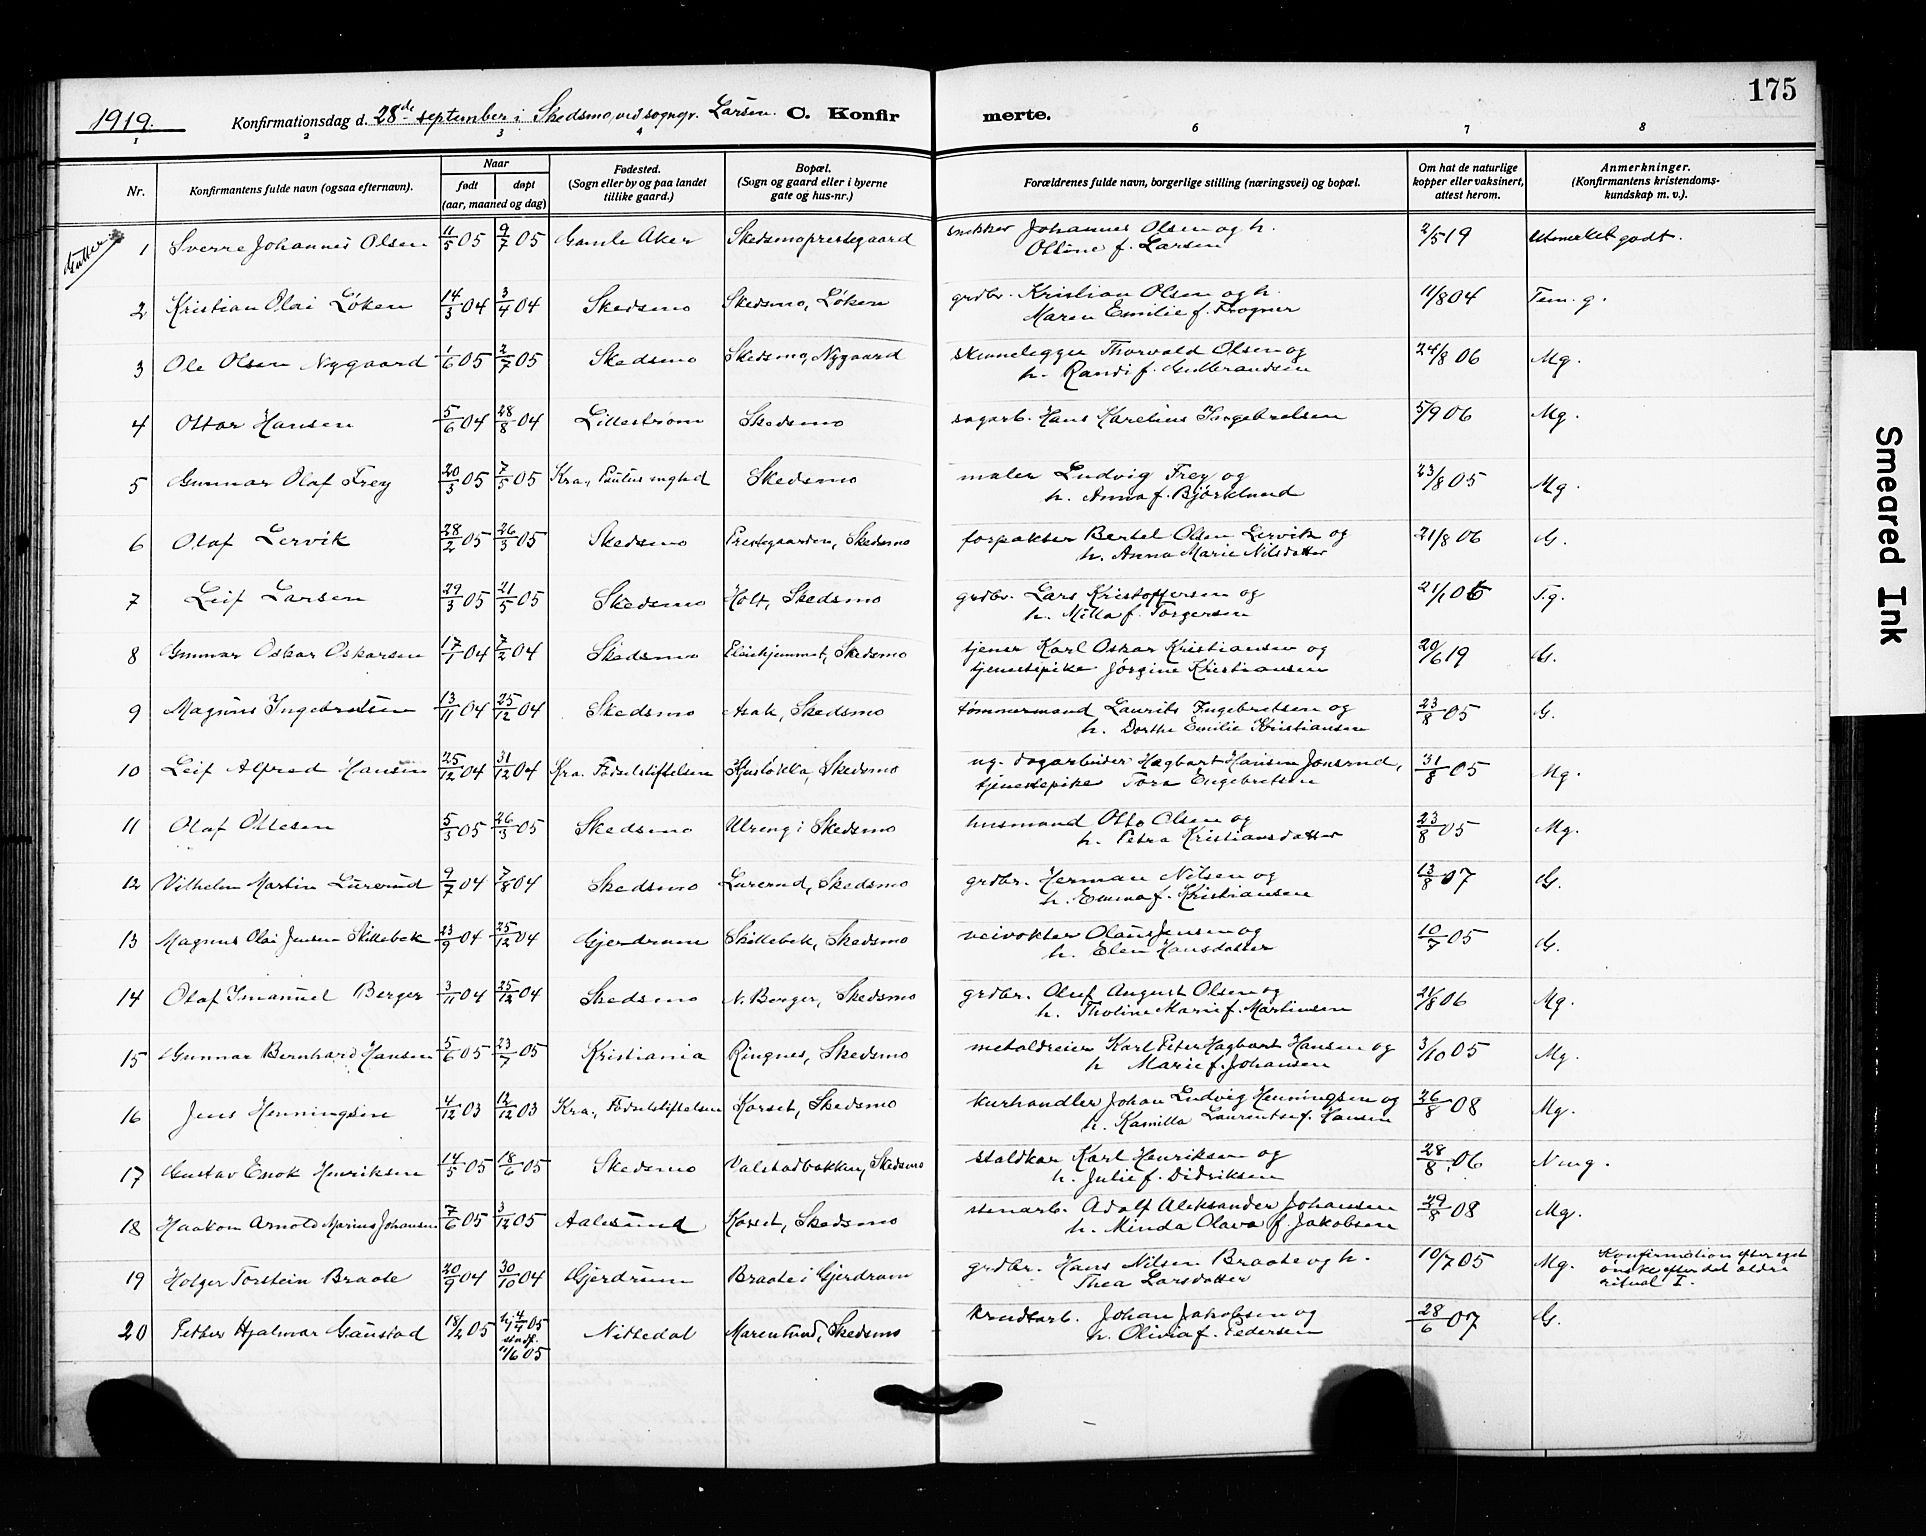 175
1919.
Konfirmationsdag d. 28de september i Skedsmo, ved sogнepr. Larsen. C. Konfirmerte.
1 2 3 4 6 7 8
Nr.
Konfirmantens fulde navn (ogsaa efternavn).
Naar
født
døpt
(aar, maaned og dag)
Fødested.
(Sogn eller by og paa landet
tillike gaard.)
Bopæl.
(Sogn og gaard eller i byerne
gate og hus-nr.)
Forældrenes fulde navn, borgerlige stilling (næringsvei) og bopæl.
Om hat de naturlige
kopper eller vaksinert,
attest herom.
Anmerkninger.
(Konfirmantens kristendoms-
kundskap m. v.).
Gutter
1 Sverre Johannes Olsen 11/5 05 9/7 05 Gamle Aker Skedsmoprestegaard snekker Johannes Olsen og h. 2/5 19 Utmerket godt.
Oltine f. Larsen
2 Kristian Olai Løken 14/3 04 3/4 04 Skedsmo Skedsmo, Løken grdbr. Kristian Olsen og h. 11/8 04 Tem. g.
Maren Emilie f. Frogner
3 Ole Olsen Nygaard 1/6 05 2/7 05 Skedsmo Skedsmo, Nygaard skinnelegger Thorvald Olsen og 24/8 06 Mg.
h. Randi f. Gulbrandsen
4 Ottar Hansen 5/6 04 28/8 04 Lillestrøm Skedsmo sagarb. Hans Karelius Ingebretsen 5/9 06 Mg.
5 Gunnar Olaf Frey 20/3 05 7/5 05 Kra., Paulus mghed Skedsmo maler Ludvig Frey og 23/8 05 Mg.
h. Anna f. Bjørklund
6 Olaf Lervik 28/2 05 26/3 05 Skedsmo Prestegaarden, Skedsmo forpakter Bertel Olsen Lervik og 21/8 06 G.
h. Anna Marie Nilsdatter
7 Leif Larsen 29/3 05 21/5 05 Skedsmo Holt, Skedsmo grdbr. Lars Kristoffersen og 21/1 06 T.g.
h. Milla f. Torgersen
8 Gunnar Oskar Oskarsen 17/1 04 7/2 04 Skedsmo Pleiehjemmet, Skedsmo tjener Karl Oskar Kristiansen og 20/6 19 G.
tjenestepike Jørgine Kristiansen
9 Magnus Ingebretsen 13/11 04 25/12 04 Skedsmo Asak, Skedsmo tømmermand Laurits Ingebretsen og 23/8 05 G.
h. Dorthe Emilie Kristiansen
10 Leif Alfred Hansen 25/12 04 31/12 04 Kra. Fødselstiftelsen Husløkka, Skedsmo ug. dagarbeider Hagbart Hansen Jonsrud, 31/8 05 Mg.
tjenestepike Tora Engebretsen
11 Olaf Ottesen 5/3 05 26/3 05 Skedsmo Ulreng i Skedsmo husmand Otto Olsen og 23/8 05 Mg.
h. Petra Kristiansdatter
12 Vilhelm Martin Lurerud 9/7 04 7/8 04 Skedsmo Lurerud, Skedsmo grdbr. Herman Nilsen og 13/8 07 G.
h. Emma f. Kristiansen
13 Magnus Olai Jensen Skillebek 23/9 04 25/12 04 Gjerdrum Skillebek, Skedsmo veivokter Olaus Jensen og 10/7 05 G.
h. Elen Hansdatter
14 Olaf Imanuel Berger 3/11 04 25/12 04 Skedsmo N. Berger, Skedsmo grdbr. Oluf August Olsen og 21/8 06 Mg.
h. Tholine Marie f. Martinsen
15 Gunnar Bernhard Hansen 5/6 05 23/7 05 Kristiania Ringnes, Skedsmo metaldreier Karl Peter Hagbart Hansen og 3/10 05 Mg.
h Marie f. Johansen
16 Jens Henningsen 4/12 03 12/12 03 Kra., Fødselstiftelsen Korset, Skedsmo kurhandler Johan Ludvig Henningsen og 26/8 08 Mg.
h. Kamilla Laurentse f. Hansen
17 Gustav Enok Henriksen 14/5 05 18/6 05 Skedsmo Valstadbakken, Skedsmo staldkar Karl Henriksen og 28/8 06 Nmg.
h. Julie f. Didriksen
18 Haakon Arnold Marius Johansen 7/6 05 3/12 05 Aalesund Korset, Skedsmo stenarb. Adolf Aleksander Johansen 29/8 08 Mg.
h. Minda Olava f. Jakobsen
19 Holger Torstein Braate 20/9 04 30/10 04 Gjerdrum Braate i Gjerdrum grdbr. Hans Nilsen Braate og h. 10/7 05 Mg. Konfirmation efter eget
Thea Larsdatter ønske efter det ældre
ritual I.
20 Petter Hjalmar Gaustad 18/2 05 hj 4/4 05 Nittedal Marenlund, Skedsmo krudtarb. Johan Jakobsen og 28/6 07 G.
stadf.
11/6 05 h. Olivia f. Pedersen
Smeared Ink